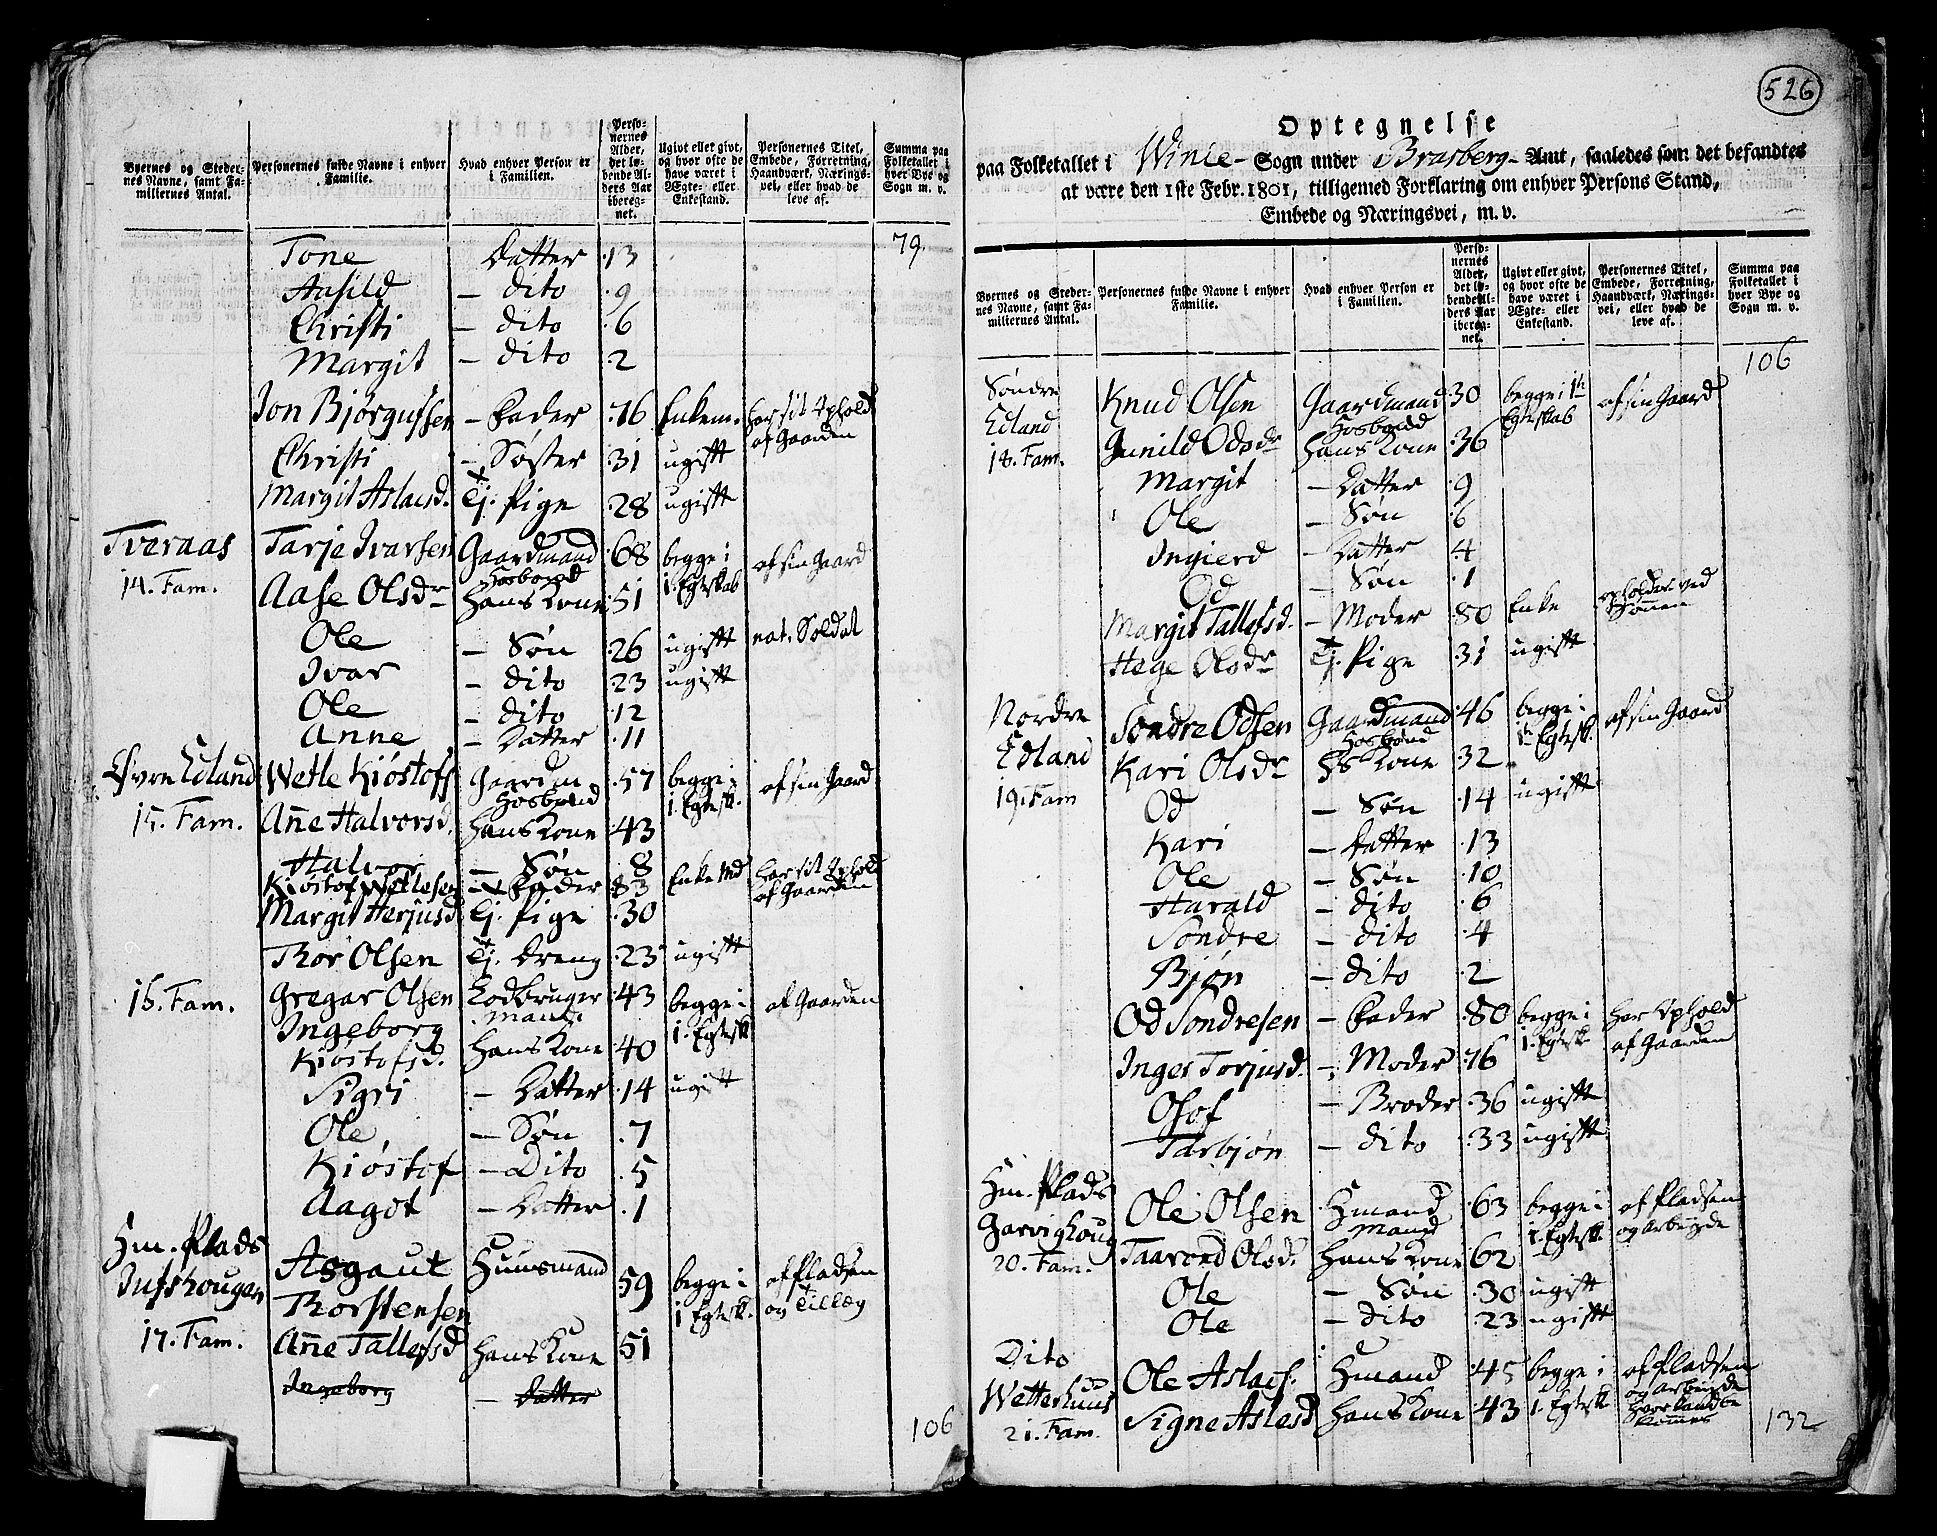 Byernes og Steder-
nes Navne, samt Fa-
miliernes Antal.
Personernes fulde Navne i enhver
Familie.
Hvad enhver Person er
i Familien.
Perso-
nernes
Alder,
det lø-
bende Al-
ders Aar
ibereg-
net.
Ugivt eller givt,
og hvor ofte de
have været i
Ægte- eller
Enkestand.
Personernes Titel,
Embede, Forretning,
Haandværk, Nærings-
vei, eller hvad de
leve af.
Summa paa
Folketallet i
hver Bye og
Sogn m. v.
79.
Tone Datter 13
Aasild – dito 9
Christi – dito 6
Margit – dito 2
Jon Bjørgufsen – Fader 76 Enkem. har sit Ophold af Gaarden
Christi – Søster 31 ugift
Margit Aslacsd. Tj. Pige 28 ugift
Tveraas Tarje Ivarsen Gaardmand Hosbond 68 begge i 1. Egteskab af sin Gaard
14. Fam. Aase Olsdr Hans Kone 51
Ole – Søn 26 ugift nat. Soldat
Ivar – dito 23 ugift
Ole – dito 12
Anne – Datter 11
Øvre Edland Wetle Kiøstofs Gaardm Hosbond 57 begge i 1. Egtesk. af sin Gaard
15. Fam. Anne Halvorsd. Hans Kone 43
Halvor – Søn 8
Kiøstof Wetlesen – Fader 83 Enke Md har sit Ophold af Gaarden
Margit Herjusd Tj. Pige 30
Thor Olsen Tj. Dreng 23 ugift
16. Fam. Gregar Olsen Lodbruger mand 43 begge i 1. Egtesk. af Gaarden
Ingeborg
Kiøstofsd. Hans Kone 40
Sigri – Datter 14 ugift
Ole – Søn 7
Kiøstof – Dito 5
Aagot – Datter 1
Hm. Plads
Asgaut Huusmand 59 begge i 1 Egtesk. af Pladsen og Tillæg
Thorstensen
17. Fam. Anne Tallefsd Hans Kone 51
Ingeborg – Datter
106
526
Optegnelse
paa Folketallet i Winie Sogn under Brasberg Amt, saaledes som det befandtes
at være den 1ste Febr. 1801, tilligemed Forklaring om enhver Persons Stand,
Embede og Næringsvei, m. v.
Byernes og Steder-
nes Navne, samt Fa-
miliernes Antal.
Personernes fulde Navne i enhver
Familie.
Hvad enhver Person er
i Familien.
Perso-
nernes
Alder,
det lø-
bende Al-
ders Aar
ibereg-
net.
Ugivt eller givt,
og hvor ofte de
have været i
Ægte- eller
Enkestand.
Personernes Titel,
Embede, Forretning,
Haandværk, Nærings-
vei, eller hvad de
leve af.
Summa paa
Folketallet i
hver Bye og
Sogn m. v.
106
Søndre Knud Olsen Gaardmand Hosbond 30 begge i 1ste Egteskab af sin Gaard
Edland Gunild Odsdr Hans Kone 36
18. Fam. Margit – Datter 9
Ole – Søn 6
Ingierd – Datter 4
Od – Søn 1
Margit Tallefsd. – Moder 80 Enke opholdes ved Sønnen
Hege Olsdr Tj. Pige 31 ugift
Nordre Sondre Odsen Gaardmand Hosbond 46 begge i 1te Egtesk. af sin Gaard
Edland Kari Olsdr Hs Kone 32
19. Fam Od – Søn 14 ugift
Kari – Datter 13
Ole – Søn 10
Harald – dito 6
Sondre – dito 4
Bjøn – dito 2
Od Sondresen – Fader 80 begge i 1. Egtesk. har Ophold af Gaarden
Inger Torjusd. – Moder 76
Olof – Broder 36 ugift
Tarbjøn – dito 33 ugift
Hm. Plads Ole Olsen Hmand mand 63 begge i 1. Egtesk. af Pladsen og Arbeyde
Garvighoug Taarond Olsd. Hans Kone 62
20. Fam. Ole – Søn 30 ugift
Ole – dito 23 ugift
Dito Ole Aslacs. Hmand 45 begge i 1. Egtesk. af Pladsen og Arbeyde
Wetterhuus Signe Aslesd Hans Kone 43
21. Fam.
132